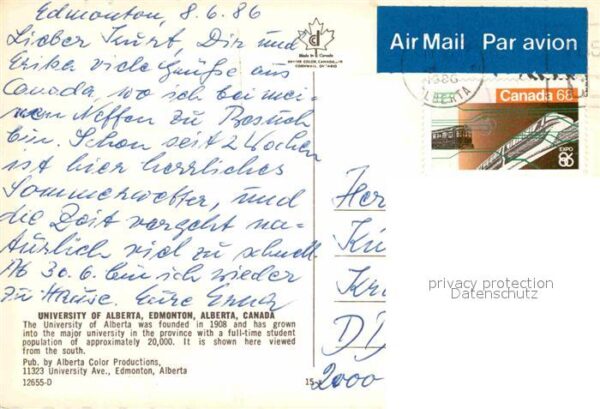 Edmonton, 8.6.86
Lieber Kurt, Dir und
Erika viele Grüße aus
Canada, wo ich bei mei-
nem Neffen zu Besuch
bin. Schon seit 2 Wochen
ist hier herrliches
Sommerwetter, und
die Zeit vergeht na-
türlich viel zu schnell.
Ab 30.6. bin ich wieder
zu Hause. Eure Erna
UNIVERSITY OF ALBERTA, EDMONTON, ALBERTA, CANADA
The University of Alberta was founded in 1908 and has grown
into the major university in the province with a full-time student
population of approximately 20,000. It is shown here viewed
from the south.
Pub. by Alberta Color Productions,
11323 University Ave., Edmonton, Alberta
12655-D
Made in Canada
CORNWALL, ONTARIO
Air Mail Par avion
1986
ALBERTA
Canada 68
EXPO
86
Her
Kr
D
2000
privacy protection
Datenschutz
15